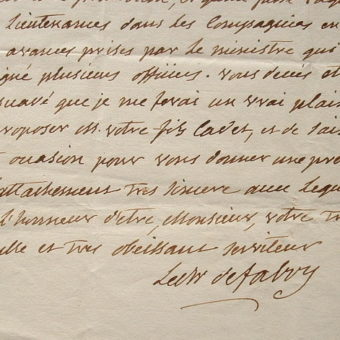 lieutenances dans les Compagnies en
avances prises par le ministre qui
gné plusieurs officiers. vous
que je me ferai un vrai plais
roposer M. votre fils Cadet, et de sais
occasion pour vous donner une pre
attachement tres sincere avec leque
l'honneur d'etre, Monsieur, votre tr
ble et tres obeissant serviteur
Le chr de fabry